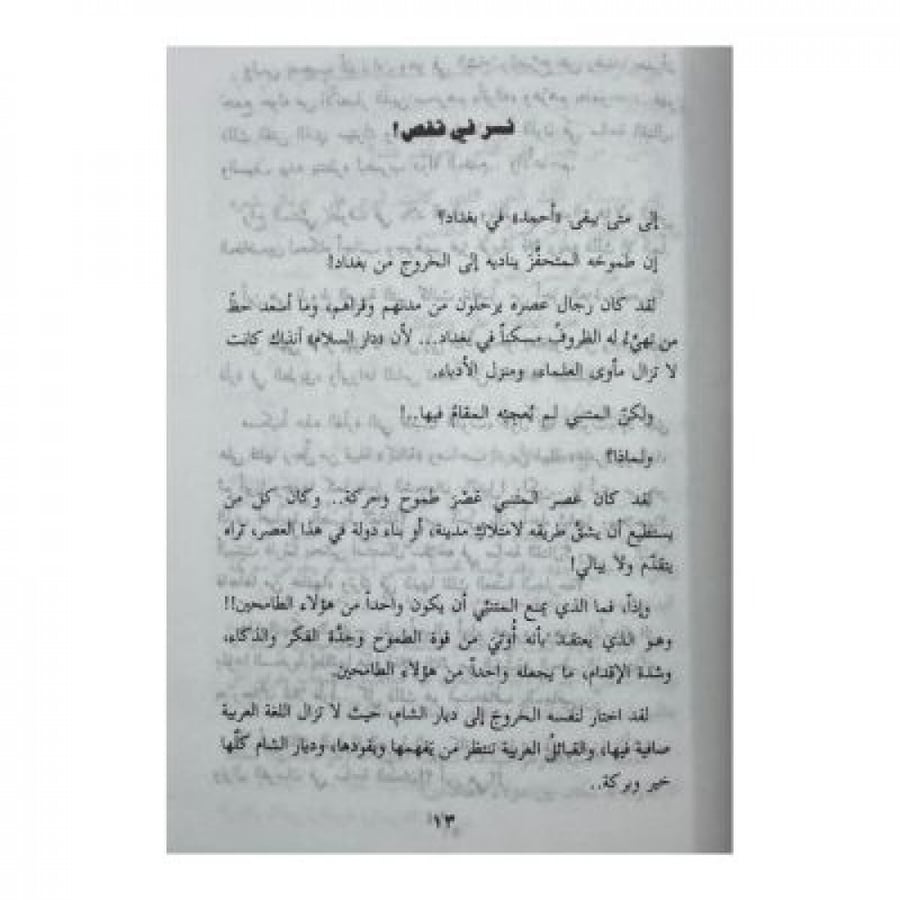 نسر في قفص!
إلى متى يبقى «أحمد» في بغداد؟
إن طموحَه المتحفِّزَ يناديه إلى الخروج من بغداد!
لقد كان رجال عصره يرحلون من مدنهم وقراهم، وما أسعد حظَّ
من تهيّئ له الظروفُ مسكناً في بغداد... لأن «دار السلام» آنذاك كانت
لا تزال مأوى العلماء، ومنزل الأدباء.
ولكنّ المتنبي لم يُعجبْه المقامُ فيها..!
ولماذا؟
لقد كان عصر المتنبي عَصْرَ طموح وحركة.. وكان كل من
يستطيع أن يشقَّ طريقه لامتلاك مدينة، أو بناء دولة في هذا العصر، تراه
يتقدّم ولا يبالي!
وإذاً، فما الذي يمنع المتنبّي أن يكون واحداً من هؤلاء الطامحين!!
وهو الذي يعتقدُ بأنه أُوتيَ من قوة الطموح وحِدَّة الفكر والذكاء،
وشدة الإقدام، ما يجعله واحداً من هؤلاء الطامحين.
لقد اختار لنفسه الخروجَ إلى ديار الشام، حيث لا تزال اللغة العربية
صافية فيها، والقبائلُ العربية تنتظر من يَفهمها ويقودها، وديار الشام كلّها
خير وبركة..
١٣